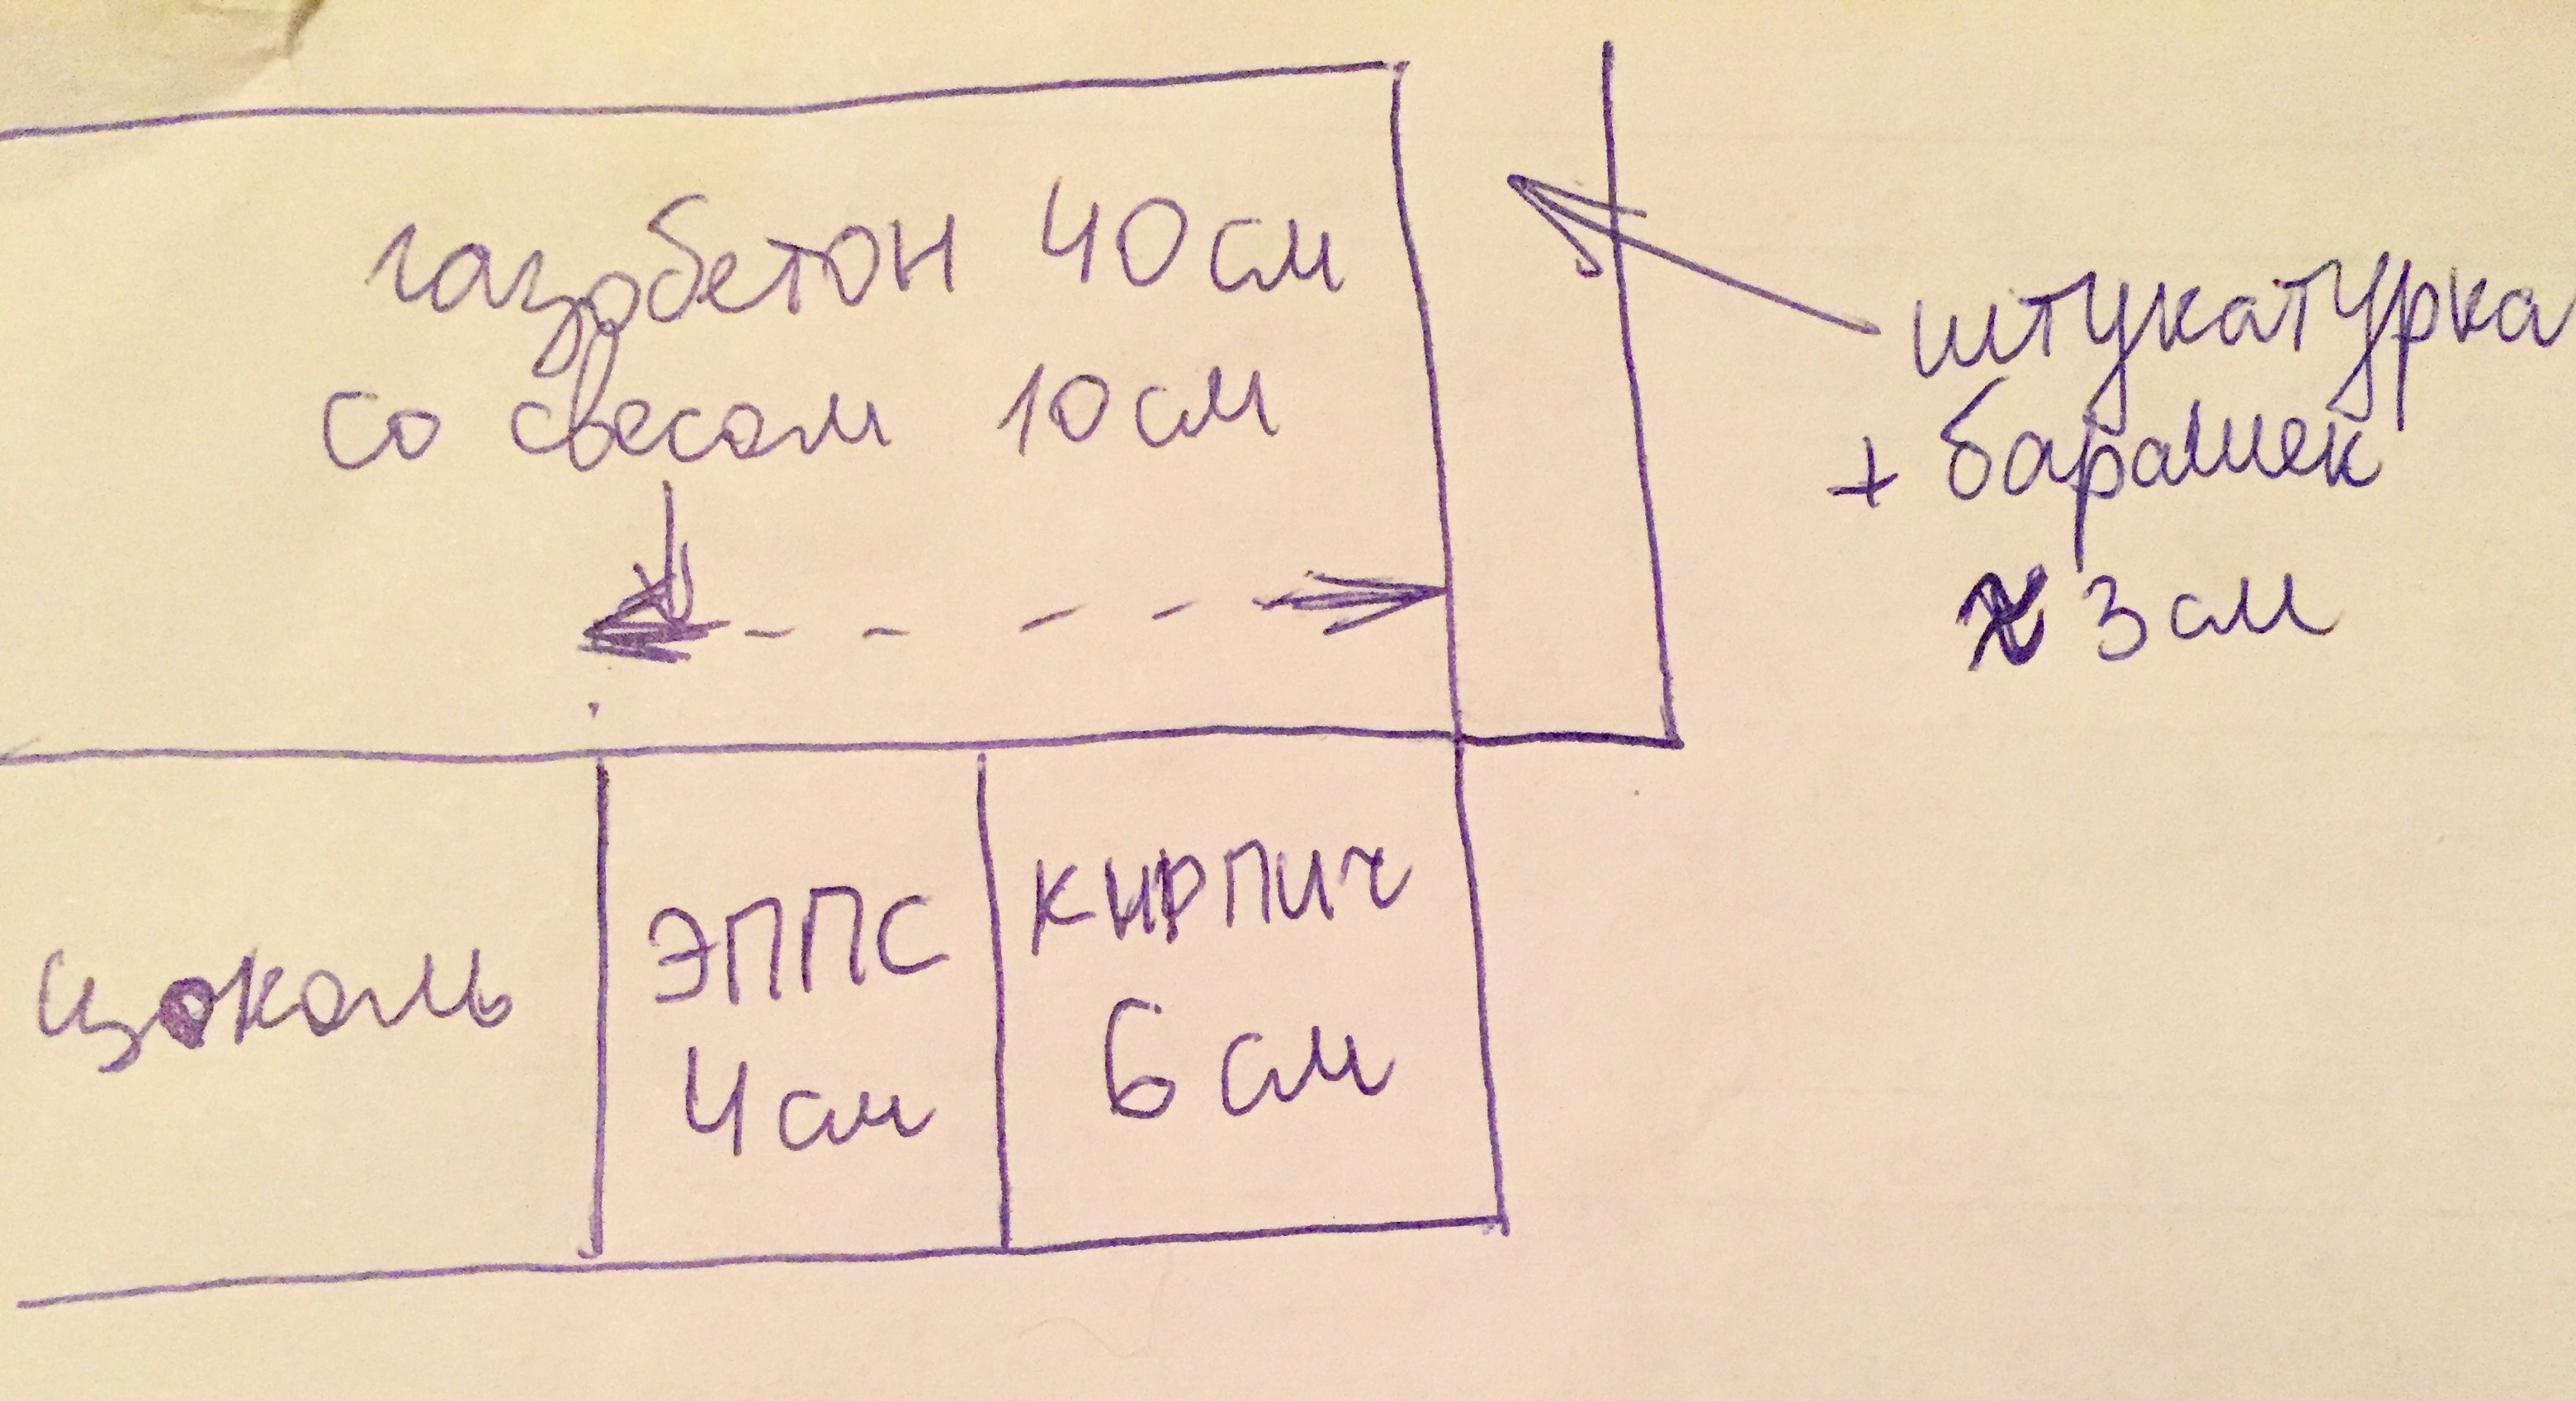 газобетон 40см
со свесом 10см
штукатурка
+ барашек
≈ 3см
цоколь
ЭППС
4см
кирпич
6см